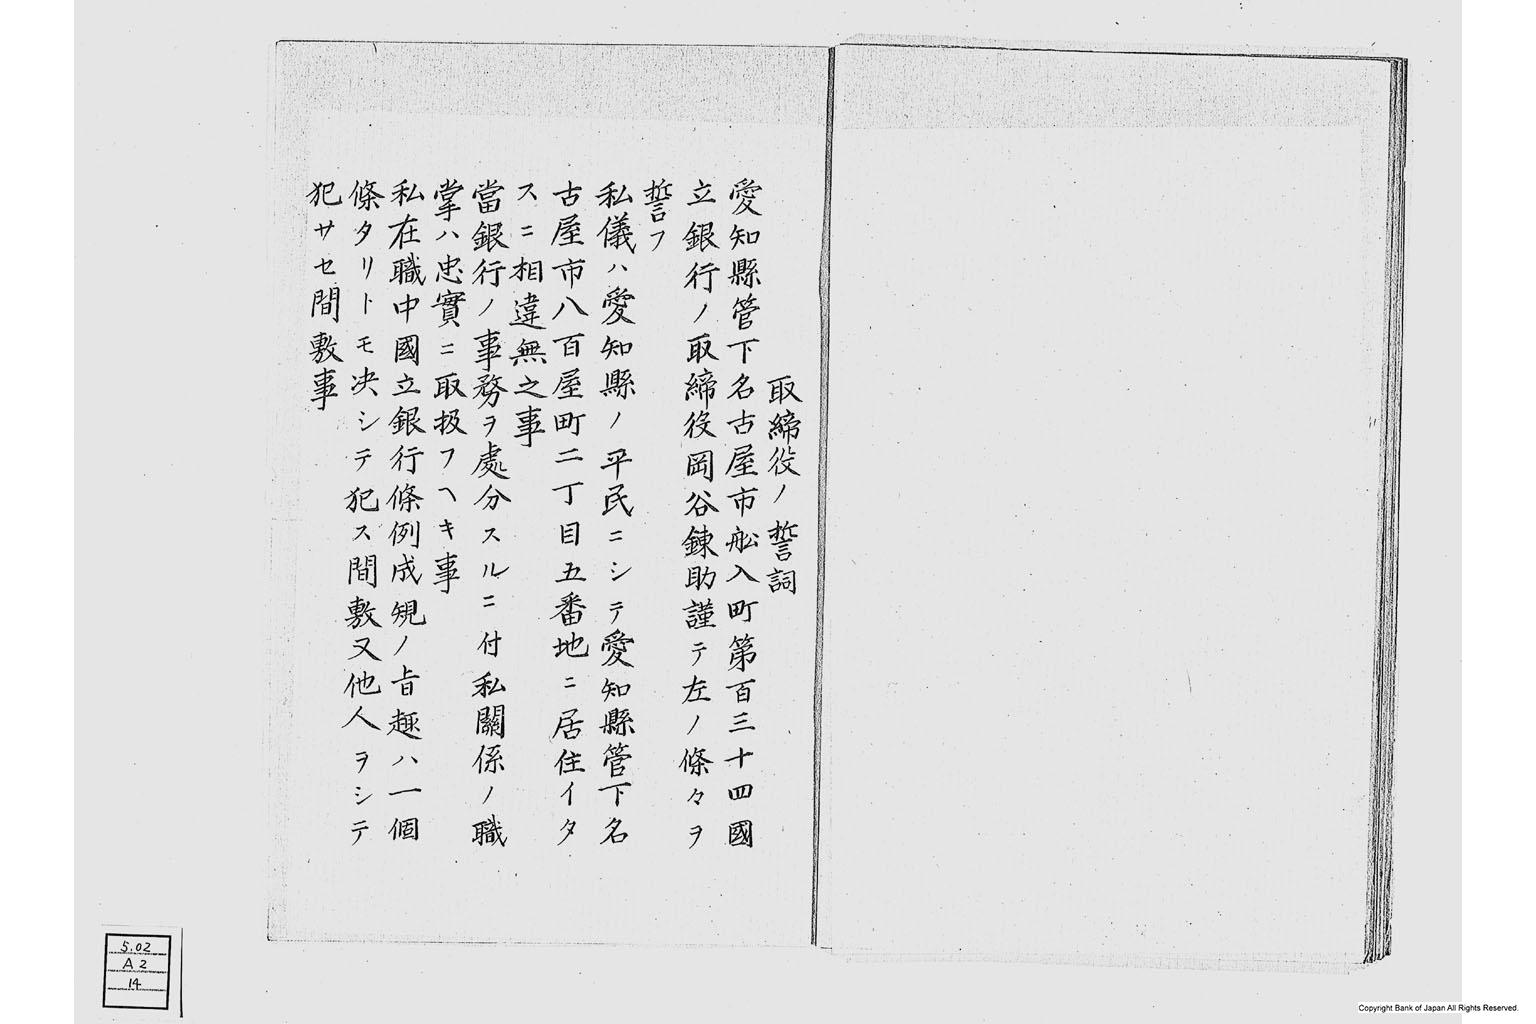 取締役ノ誓詞
愛知縣管下名古屋市舩入町第百三十四國
立銀行ノ取締役岡谷鍊助謹テ左ノ條々ヲ
誓フ
私儀ハ愛知縣ノ平民ニシテ愛知縣管下名
古屋市八百屋町二丁目五番地ニ居住イタ
スニ相違無之事
當銀行ノ事務ヲ處分スルニ付私關係ノ職
掌ハ忠實ニ取扱フヘキ事
私在職中國立銀行條例成規ノ旨趣ハ一個
條タリトモ决シテ犯ス間敷又他人ヲシテ
犯サセ間敷事
5.02
A2
14
Copyright Bank of Japan All Rights Reserved.